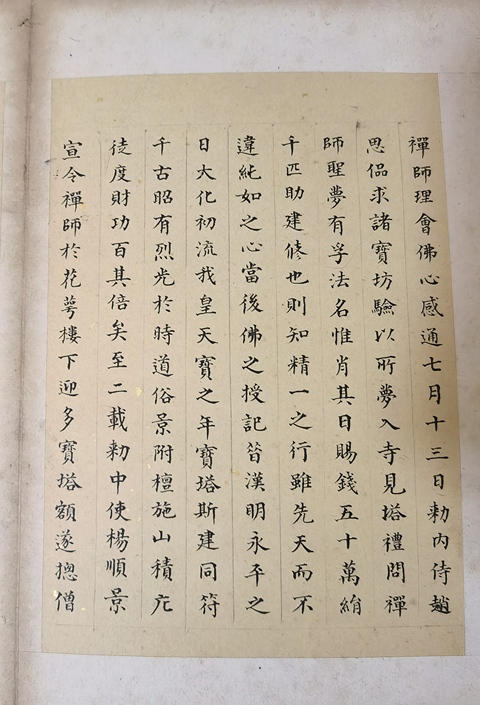 禪師理會佛心感通七月十三日勑內侍趙
思侶求諸寶坊驗以所夢入寺見塔禮問禪
師聖夢有孚法名惟肖其日賜錢五十萬絹
千匹助建修也則知精一之行雖先天而不
違純如之心當後佛之授記昔漢明永平之
日大化初流我皇天寶之年寶塔斯建同符
千古昭有烈光於時道俗景附檀施山積庀
徒度財功百其倍矣至二載勑中使楊順景
宣令禪師於花萼樓下迎多寶塔額遂摠僧